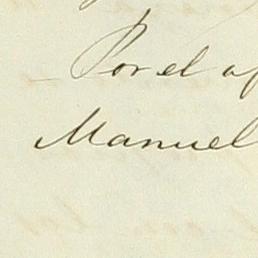 Por el
Manuel